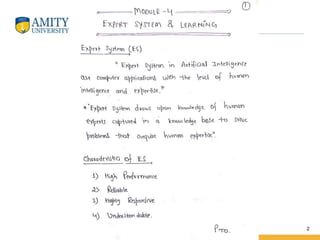 AMITY
UNIVERSITY
①
MODULE-4
EXPERT SYSTEM & LEARNING
Expert System (ES)
"Expert System in Artificial Intelligence
are computer applications with the level of human
intelligence and expertise."
* "Expert System draws upon knowledge of human
experts captured in a knowledge base to solve
problems that require human expertise".
Characteristics of ES
1) High Performance
2) Reliable
3) Highly Responsive
4) Understandable.
PTO.
2